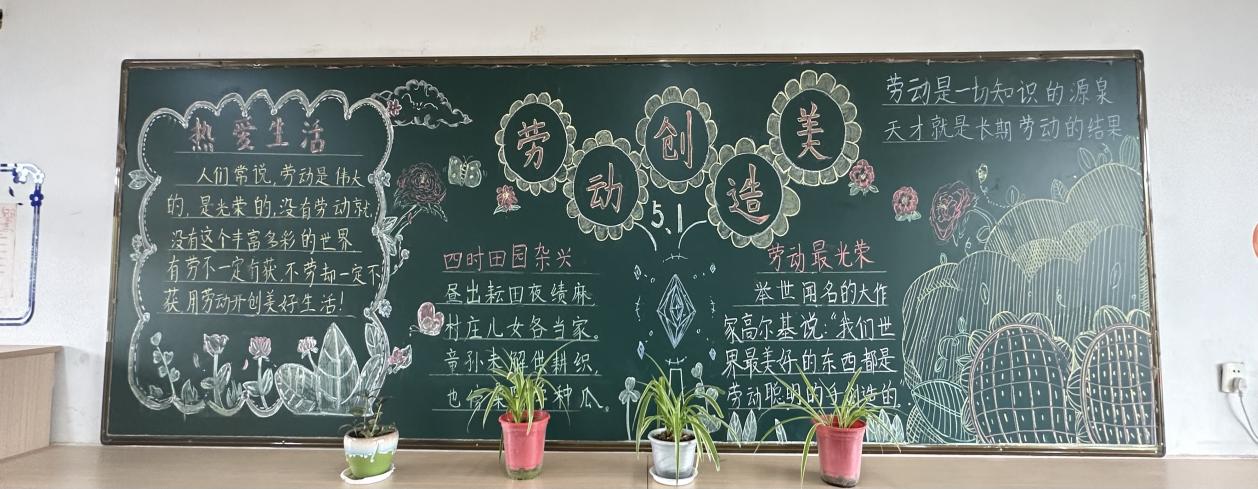 热爱生活
人们常说,劳动是伟大
的,是光荣的,没有劳动就
没有这个丰富多彩的世界
有劳不一定有获,不劳却一定不
获,用劳动开创美好生活!
劳动创造美
5.1
四时田园杂兴
昼出耘田夜绩麻
村庄儿女各当家。
童孙未解供耕织,
也 种瓜。
劳动最光荣
举世闻名的大作
家高尔基说:“我们世
界最美好的东西都是
劳动聪明的手创造的”
劳动是一切知识的源泉
天才就是长期劳动的结果